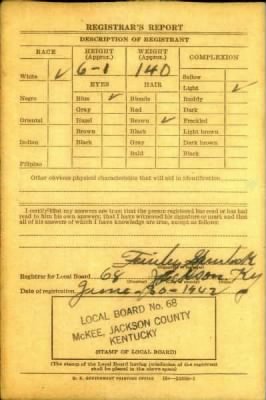 REGISTRAR'S REPORT
DESCRIPTION OF REGISTRANT
RACE HEIGHT (Approx.) WEIGHT (Approx.) COMPLEXION
6-1 140
White ✓ EYES HAIR Sallow
Light ✓
Negro Blue ✓ Blonde Ruddy
Gray Red Dark
Oriental Hazel Brown ✓ Freckled
Brown Black Light brown
Indian Black Gray Dark brown
Bald Black
Filipino
Other obvious physical characteristics that will aid in identification
I certify that my answers are true; that the person registered has read or has had
read to him his own answers; that I have witnessed his signature or mark and that
all of his answers of which I have knowledge are true, except as follows:
Registrar for Local Board 68 Jackson Ky
Date of registration June 30-1942
LOCAL BOARD No. 68
McKEE, JACKSON COUNTY
KENTUCKY
(STAMP OF LOCAL BOARD)
(The stamp of the Local Board having jurisdiction of the registrant
shall be placed in the above space)
U. S. GOVERNMENT PRINTING OFFICE